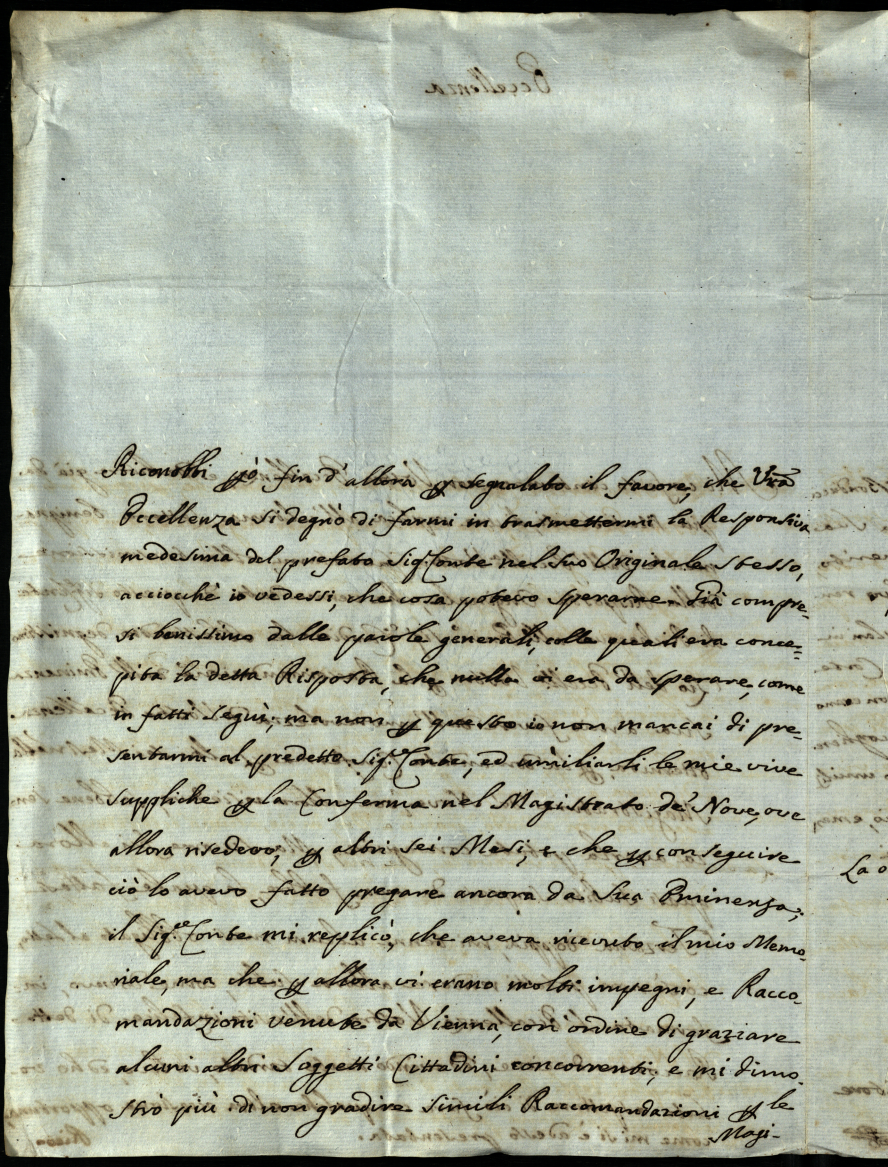 Riconobbi p̱ò fin d'allora p̱ segnalato il favore, che Vr̃a
Eccellenza si degnò di farmi in trasmettermi la Responsiva
medesima del prefato Sig.r Conte nel suo Originale stesso,
acciocchè io vedessi, che cosa potevo sperarne. Già compre-
si benissimo dalle parole generali, colle quali era conce-
pita la detta Risposta, che nulla vi era da sperare, come
in fatti seguì; ma non p̱ questo io non mancai di pre-
sentarmi al predetto Sig.re Conte, ed umiliarli le mie vive
suppliche p̱ la Conferma nel Magistrato de' Nove, ove
allora risedevo, p̱ altri sei Mesi, e che p̱ conseguire
ciò lo avevo fatto pregare ancora da Sua Eminenza;
il Sig.re Conte mi replicò, che aveva ricevuto il mio Memo-
riale, ma che p̱ allora vi erano molti impegni, e Racco-
mandazioni venute da Vienna, con ordine di graziare
alcuni altri Soggetti Cittadini concorrenti, e mi dimo-
strò più di non gradire simili Raccomandazioni p̱ le
Magi-
La